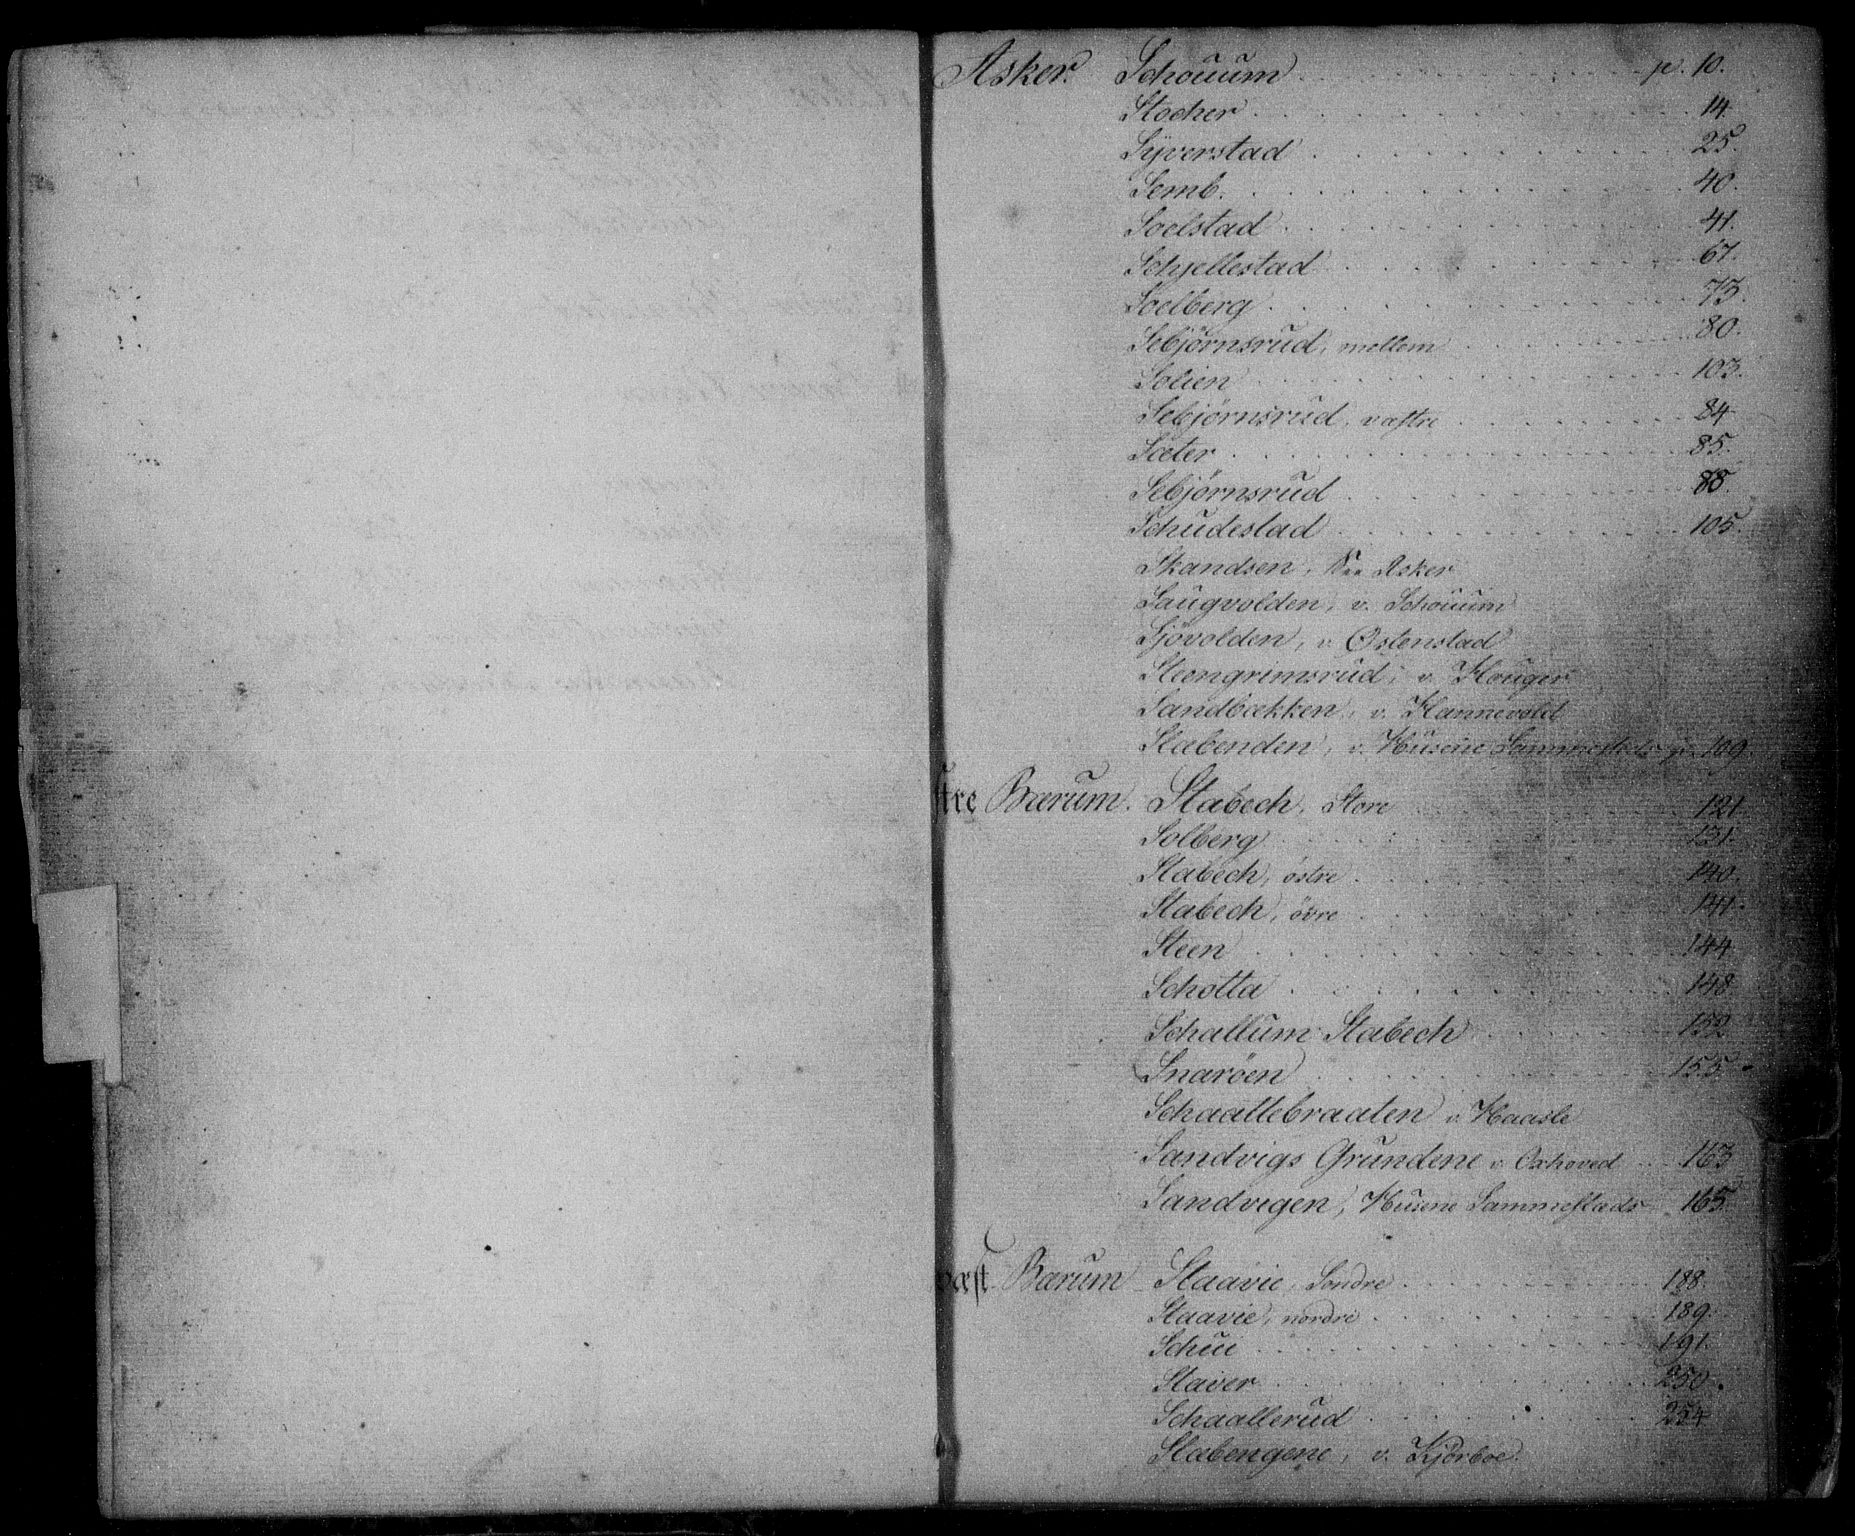 Asker. Schouum p. 10.
Stocher 14
Syverstad 25.
Semb. 40.
Soelstad 41.
Schjellestad 67.
Soelberg 73.
Sebjörnsrud, mellem 80.
Solien 103.
Sebjörnsrud, væstre 84
Sæter 85.
Sebjörnsrud 88.
Schudestad 105.
Skandsen, Asker
Saugvolden, v. Schouum
Sjövolden, v. Ostenstad
Steengrimsrud, v. Houger
Sandbækken, v. Hannevold
Slabenden, v. Husene Sammesteds p. 109.
stre Bærum. Stabech, Store 121.
Solberg 131.
Stabech, östre 140.
Stabech, övre 141.
Steen 144
Schotta 148
Schallum Stabech 152
Snaröen 155
Schaallebraaten v. Haasle
Sandvigs Grundene v. Oxhoved 163
Sandvigen, Husene Sammesteds 165.
væst Bærum Staavie, Söndre 188.
Staavie, nordre 189.
Schui 191.
Staver 250.
Schaallerud 254
Slabengene, v. Kjörboe.